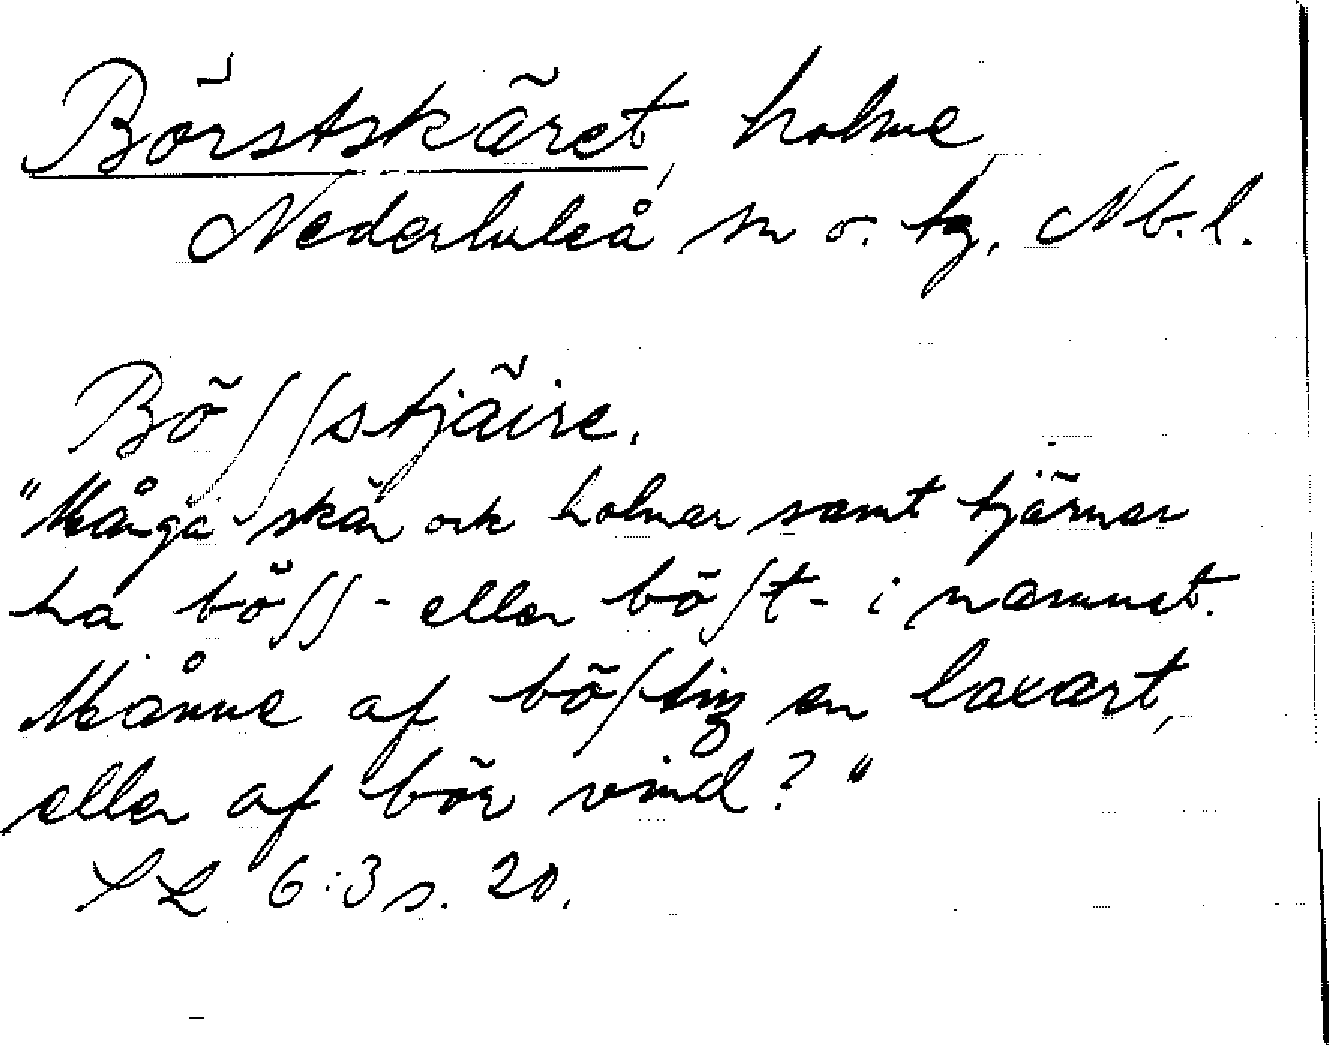 Börstskäret, holme,
Nederluleå sn o. tg, Nb.l.
Böʃʃstjäire.
"Många skär och holmar samt tjärnar
ha böʃʃ- eller böʃt- i namnet.
Månne af böʃting en laxart,
eller af bör vind?"
SL 6:3 s. 20.